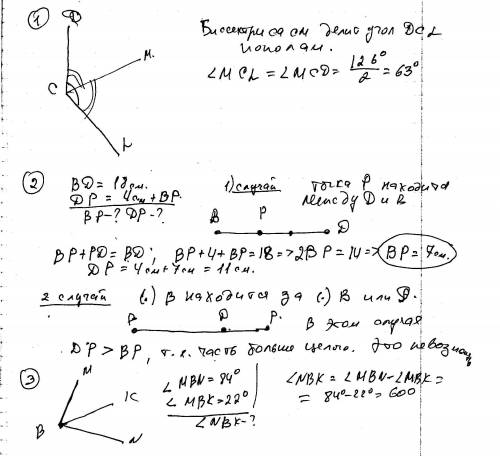 1
D
M.
C
L
Биссектриса см делит угол DCL
пополам.
∠MCL = ∠MCD = 126°/2 = 63°
2
BD = 18 см.
DP = 4см + BP.
BP-? DP-?
1) случай точка P находится
между D и B
B P D
BP + PD = BD; BP + 4 + BP = 18 => 2BP = 14 => BP = 7 см.
DP = 4см + 7см = 11 см.
2 случай (.) B находится за (.) B или D.
D P.
В этом случае
DP > BP, т.к. часть больше целого. Это невозможн
3
M
K
B
N
∠MBN = 84°
∠MBK = 22°
∠NBK-?
∠NBK = ∠MBN - ∠MBK =
= 84° - 22° = 600